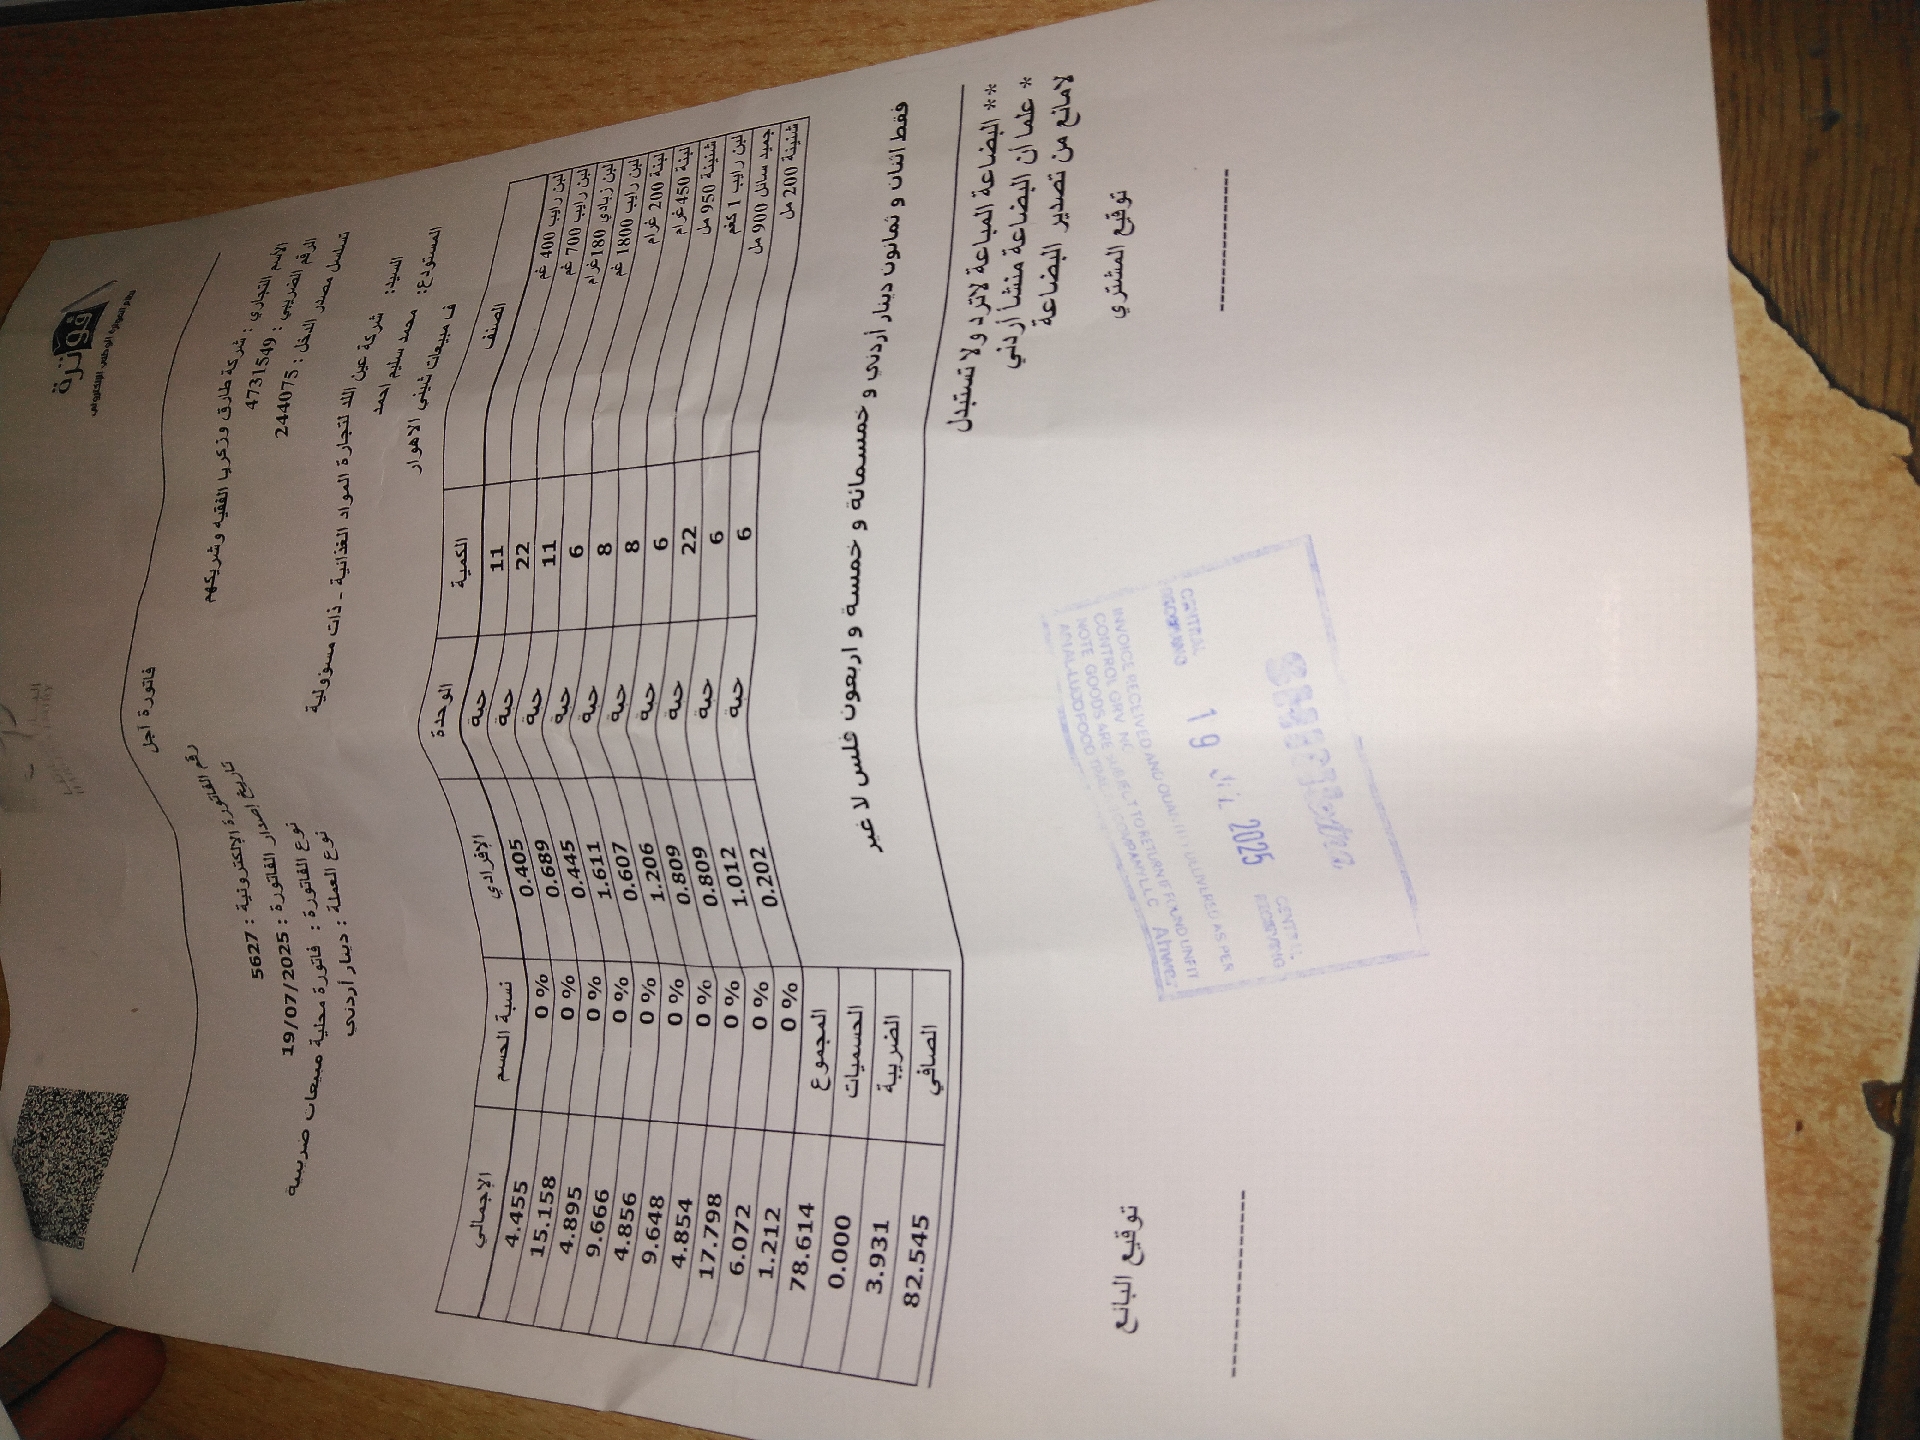 فوترة
نظام الفوترة الوطني الإلكتروني
فاتورة اجل
الاسم التجاري : شركة طارق وزكريا الفقيه وشريكهم
الرقم الضريبي : 4731549
تسلسل مصدر الدخل : 244075
رقم الفاتورة الإلكترونية : 5627
تاريخ إصدار الفاتورة : 19/07/2025
نوع الفاتورة : فاتورة محلية مبيعات ضريبية
نوع العملة : دينار أردني
السيد: شركة عين اللد لتجارة المواد الغذائية - ذات مسؤولية
المستودع: محمد سليم احمد
ف مبيعات شيني الاهوار
الصنف الكمية الوحدة الإفرادي نسبة الحسم الإجمالي
لبن رايب 400 غم 11 حبة 0.405 0 % 4.455
لبن رايب 700 غم 22 حبة 0.689 0 % 15.158
لبن زبادي 180 غرام 11 حبة 0.445 0 % 4.895
لبن رايب 1800 غم 6 حبة 1.611 0 % 9.666
لبنة 200 غرام 8 حبة 0.607 0 % 4.856
لبنة 450 غرام 8 حبة 1.206 0 % 9.648
شنينة 950 مل 6 حبة 0.809 0 % 4.854
لبن رايب 1 كغم 22 حبة 0.809 0 % 17.798
جميد سائل 900 مل 6 حبة 1.012 0 % 6.072
شنينة 200 مل 6 حبة 0.202 0 % 1.212
المجموع 78.614
الحسميات 0.000
الضريبة 3.931
الصافي 82.545
فقط اثنان و ثمانون دينار أردني و خمسمائة و خمسة و اربعون فلس لا غير
** البضاعة المباعة لاترد ولا تستبدل
* علما أن البضاعة منشأ أردني
لامانع من تصدير البضاعة
توقيع المشتري
توقيع البائع
INVOICE RECEIVED AND QUANTITY DELIVERED AS PER
CONTROL GRV N
NOTE GOODS ARE SUBJECT TO RETURN IF FOUND UNFIT
CENTRAL
RECEIVING
19 2025
CENTRAL
RECEIVING